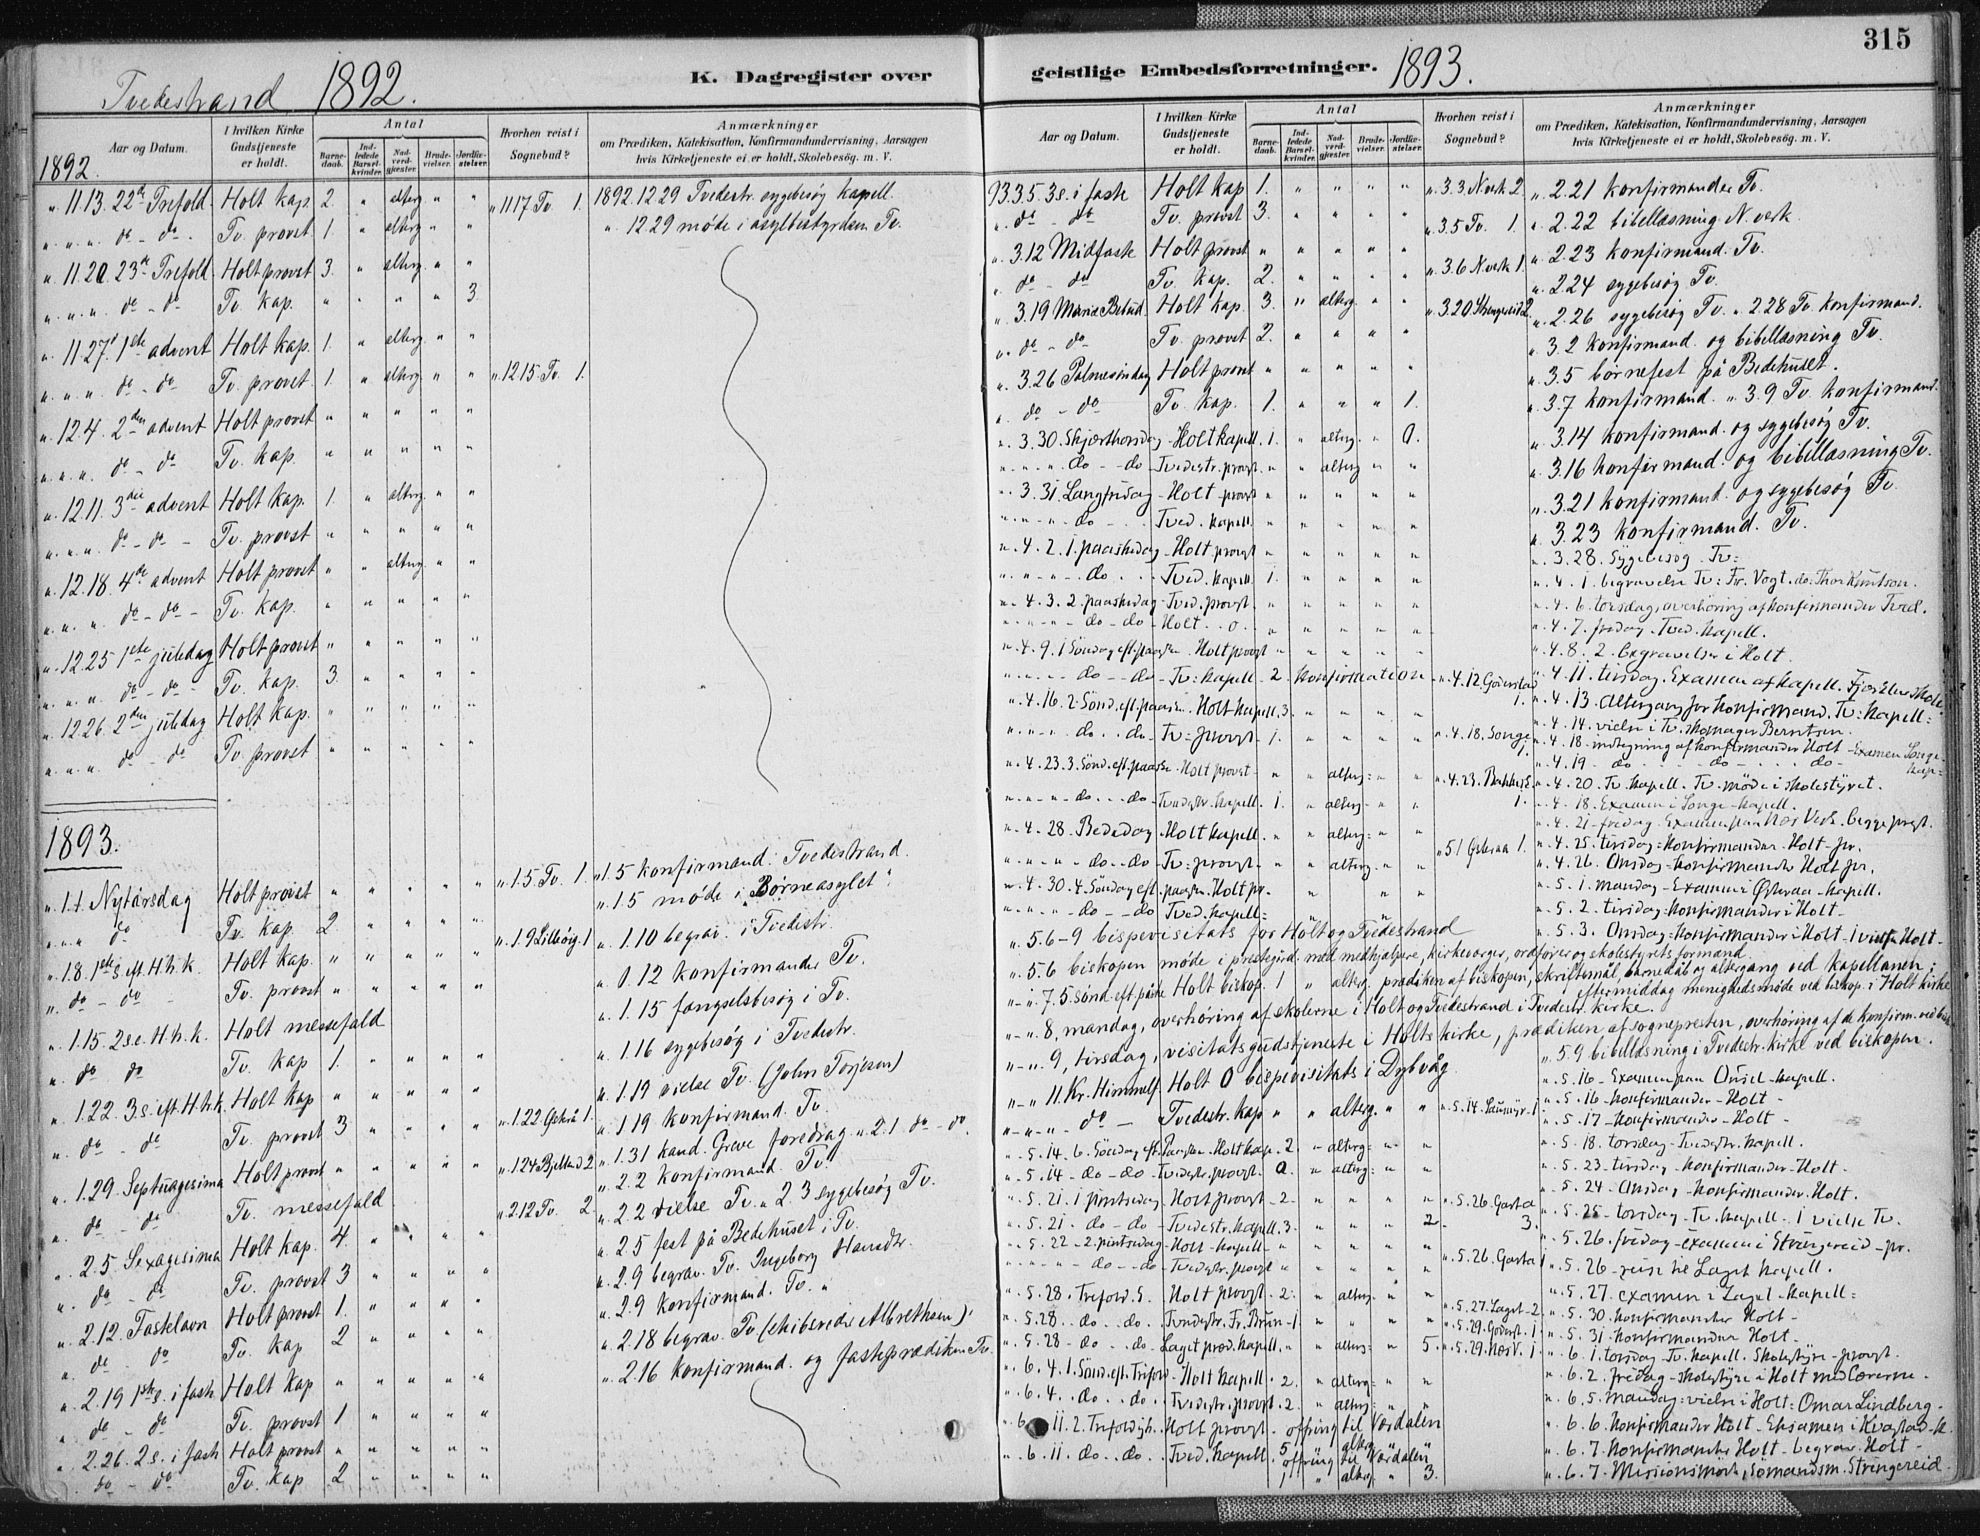 315
K. Dagregister over geistlige Embedsforretninger.
Tvedestrand 1892. 1893.
Aar og Datum.
I hvilken Kirke Gudstjeneste er holdt.
Antal
Barnedaab.
Indledede Barselkvinder.
Nadverdgjæster.
Brudevielser.
Jordfæstelser.
Hvorhen reist i Sognebud?
Anmærkninger
om Prædiken, Katekisation, Konfirmandundervisning, Aarsagen
hvis Kirketjeneste ei er holdt, Skolebesøg. m. V.
1892.
" 11.13. 22de Trefold. Holt kap. 2. " alterg " " " 11.17 Tv. 1. 1892.12.29 Tvedestr. sygebesøg kapell.
" " " do - do - Tv. provst. 1. " alterg " " " 12.29 møde i asylbestyrelsen Tv.
" 11.20. 23de Trefold. Holt provst 3. " alterg. " "
" " " do - do Tv. kap. " " " " 3.
" 11.27. 1ste advent Holt kap. 1. " alterg " "
" " " do - do Tv. provst. 1. " alterg. " " " 12.15 Tv. 1.
" 12.4. 2den advent Holt provst " " " " "
" " " do - do Tv. kap. " " " " "
" 12.11. 3die advent Holt kap. 1. " alterg. " "
" " " do - do - Tv. provst " " " " "
" 12.18. 4de advent Holt provst " " alterg " "
" " " do - do - Tv. kap. " " " " "
" 12.25 1ste juledag Holt provst " " " " "
" " " do - do - Tv. kap. 3. " " " "
" 12.26. 2den juledag Holt kap. " " " " "
" " " do - do Tv. provst " " " " "
1893.
" 1.1. Nytårsdag Holt provst " " " " " " 1.5 Tv. 1. " 1.5 konfirmand. Tvedestrand.
" " " do Tv. kap. 2. " " " " " 1.5 møde i "Børneasylet".
" 1.8. 1ste s. eft. H.h.k. Holt kap. " " " " " " 1.9 Lilleörig. 1 " 1.10 begrav. i Tvedestr.
" do - do - Tv. provst " " " " " " 1.12 konfirmander Tv.
" 1.15. 2 s. e. H.h.k. Holt messefald " 1.15 fængselsbesøg i Tv.
" do do Tv. kap 1. " " " " " 1.16 sygebesøg i Tvedestr.
" 1.22. 3 s. eft. H.h.k. Holt kap " " " " " " 1.19 vielse Tv. (John Torjesen)
" do do Tv. provst 3 " " " " " 1.22 1. " 1.19 konfirmand. Tv.
" 1.29. Septuagesima Holt provst " " " " " " 1.24 Bjelland 2. " 1.31 kand. Greve foredrag " 2.1 do - do.
" do - do Tv. messefald " 2.12 Tv. 2. " 2.2 konfirmand. Tv.
" 2.5. Sexagesima Holt kap. 4. " " " " " 2.2 vielse Tv. " 2.3 sygebesøg Tv.
" do - do Tv. provst 3 " " " " " 2.5 fest på Bedehuset i Tv.
" 2.12. Fastelavn Holt provst 1. " " " " " 2.9 begrav. Tv. Ingeborg Hansdtr.
" do do Tv. kap 2 " " " " " 2.9 konfirmand. Tv. "
" 2.19 1ste s. i fast Holt kap " " " " " " 2.18 begrav. Tv (skibsreder Albrethsen)
" do do Tv. provst 1 " " " " " 2.16 konfirmand. og fasteprædiken Tv.
" 2.26. 2 s. i fast Holt provst " " " " "
" do - do Tv. kap 2 " " " "
Aar og Datum.
I hvilken Kirke Gudstjeneste er holdt.
Antal
Barnedaab.
Indledede Barselkvinder.
Nadverdgjæster.
Brudevielser.
Jordfæstelser.
Hvorhen reist i Sognebud?
Anmærkninger
om Prædiken, Katekisation, Konfirmandundervisning, Aarsagen
hvis Kirketjeneste ei er holdt, Skolebesøg. m. V.
93.3.5. 3 s. i faste Holt kap 1. " " " " " 3.3 N.verk 2. " 2.21 konfirmander Tv.
" do - do Tv. provst 3. " " " " " 3.5 Tv. 1. " 2.22 bibellæsning N.verk.
" 3.12 Midfaste Holt provst " " " " " " 2.23 konfirmand. Tv.
" do - do Tv. kap. 2. " " " " " 3.6 N.verk 1. " 2.24 sygebesøg Tv.
" 3.19 Mariæ Bebud. Holt kap. 3. " alterg. " " " 3.20 Strengereid 2 " 2.26 sygebesøg Tv. " 2.28 Tv. konfirmand.
" do - do Tv. provst 2. " " " " " 3.2 konfirmand. og bibellæsning Tv.
" 3.26 Palmesøndag Holt provst " " " " " " 3.5 børnefest på Bedehuset.
" do - do Tv. kap. 1. " " " 1. " 3.7 konfirmand. " 3.9 Tv. konfirmand.
" 3.30. Skjærthorsdag - Holt kapell. 1. " alterg. " " 3.14 konfirmand. og sygebesøg Tv.
" " " do - do - Tvedestr. provst " " alterg " " " 3.16 konfirmand. og bibellæsning Tv.
" 3.31. Langfridag - Holt - provst " " " " " " 3.21 konfirmand. og sygebesøg Tv.
" " " do - Tved. kapell. " " " " " " 3.23 konfirmand. Tv.
" 4.2. 1. paaskedag - Holt provst " " " " " " 3.28. Sygebesøg - Tv:
" " " do - Tved. kapell. 1. " " " " " 4.1. begravelse Tv: Fr. Vogt. do. Thor Knutson.
" 4.3. 2. paaskedag - Tved. provst " " " " " " 4.6. torsdag, overhøring af konfirmander Tved.
" " " do - do - Holt . . 0. " " " " " " 4.7. fredag. Tved. kapell.
" 4.9. 1 Søndag eft. paaske - Holt provst " " " " " " 4.8. 2. begravelser i Holt.
" " " do - do - Tv: kapell 2. konfirmation " 4.12. Goderstad 1. " 4.11. tirsdag. Examen af kapell. Skole.
" 4.16. 2. Sønd. eft. paaske. Holt kapell. 3. " " " " " 4.13. altergang for konfirmand. Tv: kapell:
" " " do . . do - Tv: provst - 1. " " " " " 4.18. Songe 1. " 4.14. vielse i Tv. Skomager Berntsen.
" 4.18 - indtegning af konfirmander Holt - Examen Songe - kap:
" 4.23. 3. Sønd. eft. paaske Holt provst - " " alterg: " " " 4.23. 1. " 4.19 - do . . do . . do -
" " " do . . do - Tvedestr. kapell. 1. " alterg: " " " 4.20. Tv. kapell. Tv. møde i skolestyret.
" 4.18. Examen i Songe - kapell.
" 4.28. Bededag - Holt kapell. " " alterg: " " " 4.21 - fredag - Examen paa Næs Verk. begge prest.
" " " do . . do - Tv: provst - " " alterg. " " " 5.1 Østeraa 1. " 4.25. tirsdag: konfirmander - Holt - pr.
" 4.26. Onsdag - konfirmander Holt pr.
" 4.30. 4. Søndag eft. paaske. Holt pr. " " " " 5.1. mandag - Examen Østeraa - kapell.
" " " do - do Tved. kapell: " 5.2. tirsdag - konfirmander i Holt -
" 5.6-9 bispevisitats for Holt og Tvedestrand " 5.3. Onsdag: konfirmander i Holt - 1 vielse Holt -
" 5.6 biskopen møde i prestegård. med medhjælpere, kirkeværger, ordfører og skolestyrets formand.
" " 7. 5. sønd. eft påske Holt biskop. 1 " alterg. prædiken af biskopen, skriftemål, barnedåb og altergang ved kapellanen;
eftermiddag menighedsmøde ved biskop. i Holt kirke
" " 8, mandag, overhøring af skolerne i Holt og Tvedestrand i Tvedestr. kirke.
" " 9, tirsdag, visitatsgudstjeneste i Holts kirke, prædiken af sognepresten, overhøring af de konfirm. ved bisk.
" 5.9 bibellæsning i Tvedestr. kirke ved biskopen.
" " 11. Kr. Himmelf. Holt 0 bispevisitats i Dybvåg " 5.16 - Examen paa - kapell.
" " " do - Tvedestr. kap " " alterg. " " " 5.14. 1 " 5.16 - konfirmander - Holt -
" 5.17 - konfirmander - Holt -
" 5.14. 6. Søndag eft. Paasken - Holt kap. 2. " alterg: " " " 5.18. torsdag - Tvedestr. kapell.
" 5.14 - do - do - Tvedestr. provst. " alterg: " " " 5.23 - tirsdag - konfirmander - Holt.
" 5.21. 1 pintsedag - Holt provst - 2. " " " " " 5.26. Gasta 3. " 5.24 - Onsdag - konfirmander - Holt.
" 5.21. do - do - Tvedestr. kapell. 3. " " " 2. " 5.25 - torsdag - Tv. kapell. 1 vielse Tv.
" 5.22 - 2. pintsedag - Holt - kapell - " " " " " " 5.26 - fredag - examen i Strengereid - pr.
" " " do - do - Tvedestr. provst " " " " " " 5.26. Gasta 1 " 5.26 - reise til Laget kapell.
" 5.28. Trefold. S. Holt provst - 2. " alterg. " " " 5.27. examen i Laget - kapell:
" 5.28. do . . do. Tvedestr. Fr. Brun - 1 " " " " " 5.27. Laget - 2 " 5.30. konfirmander Holt -
" 5.28 - do . . do - Laget præd. kapell. " " alterg: " 5. " 5.29. Goderst. 1 " 5.31. konfirmander Holt.
" 5.29. Næs V. 1 " 6.1. torsdag - Tv. kapell. Skolestyre - provst.
" 6.4. 1. Sønd. eft. Trefold - Holt kapell. 2. " alterg: " " " 6.2. fredag - skolestyre i Holt med Lærerne.
" 6.4. do . . do. Tvedestr. provst. 2. " alterg: " " " 6.5. Mandag: vielse i Holt: Omar Lindberg -
" 6.11. 2. Trefoldigh. - Holt provst - offring til Værdalen " 6.6. konfirmander Holt - Eksamen i Kvastad - k.
5 " alterg " "
" 6.11. do . . do. Tved. kapell. offring til Værdalen " 6.7. konfirmander Holt - begrav. Holt -
1 " alterg " 3. " 6.7. Missionsmøde, Sømandsm. Strengereid.